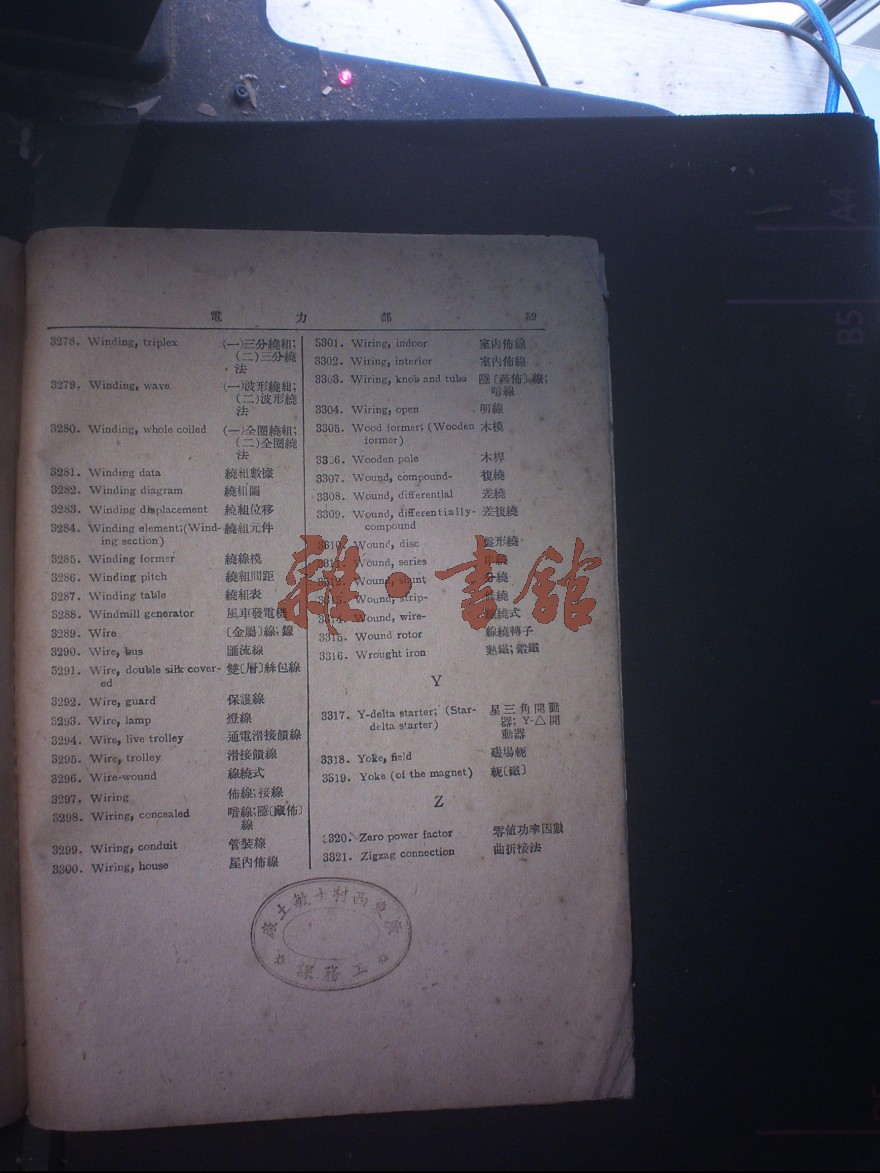 電力部 59
3278. Winding, triplex (一)三分繞組;
(二)三分繞
法
3279. Winding, wave (一)波形繞組;
(二)波形繞
法
3280. Winding, whole coiled (一)全圈繞組;
(二)全圈繞
法
3281. Winding data 繞組數據
3282. Winding diagram 繞組圖
3283. Winding displacement 繞組位移
3284. Winding element; (Wind- 繞組元件
ing section)
3285. Winding former 繞線模
3286. Winding pitch 繞組間距
3287. Winding table 繞組表
3288. Windmill generator 風車發電機
3289. Wire 〔金屬〕線; 線
3290. Wire, bus 匯流線
3291. Wire, double silk cover- 雙〔層〕絲包線
ed
3292. Wire, guard 保護線
3293. Wire, lamp 燈線
3294. Wire, live trolley 通電滑接饋線
3295. Wire, trolley 滑接饋線
3296. Wire-wound 線繞式
3297. Wiring 佈線; 接線
3298. Wiring, concealed 暗線; 隱〔藏佈〕
線
3299. Wiring, conduit 管裝線
3300. Wiring, house 屋內佈線
3301. Wiring, indoor 室內佈線
3302. Wiring, interior 室內佈線
3303. Wiring, knob and tube 線;
暗線
3304. Wiring, open 明線
3305. Wood former; (Wooden 木模
former)
3306. Wooden pole 木桿
3307. Wound, compound- 複繞
3308. Wound, differential 差繞
3309. Wound, differentially- 差復繞
compound
3310. Wound, disc 盤形繞
Wound, series
Wound, shunt 分繞
Wound, strip-
Wound, wire- 線繞式
3315. Wound rotor 線繞轉子
3316. Wrought iron 熟鐵; 鍛鐵
Y
3317. Y-delta starter; (Star- 星三角開動
delta starter) 器; Y-△開
動器
3318. Yoke, field 磁場軛
3319. Yoke (of the magnet) 軛〔鐵〕
Z
3320. Zero power factor 零值功率因數
3321. Zigzag connection 曲折接法
雜·書館
工務課
A4
B5